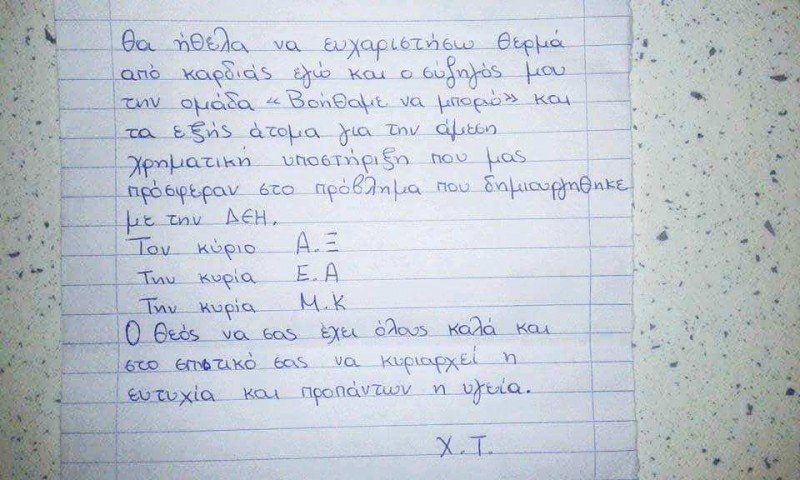 Θα ήθελα να ευχαριστήσω θερμά
από καρδιάς εγώ και ο σύζηγός μου
την ομάδα «Βοήθαμε να μπορώ» και
τα εξής άτομα για την άμεση
χρηματική υποστήριξη που μας
πρόσφεραν στο πρόβλημα που δημιουργήθηκε
με την ΔΕΗ.
Τον κύριο Α.Ξ
Την κυρία Ε.Α
Την κυρία Μ.Κ
Ο Θεός να σας έχει όλους καλά και
στο σπιτικό σας να κυριαρχεί η
ευτυχία και προπάντων η υγεία.
Χ.Τ.